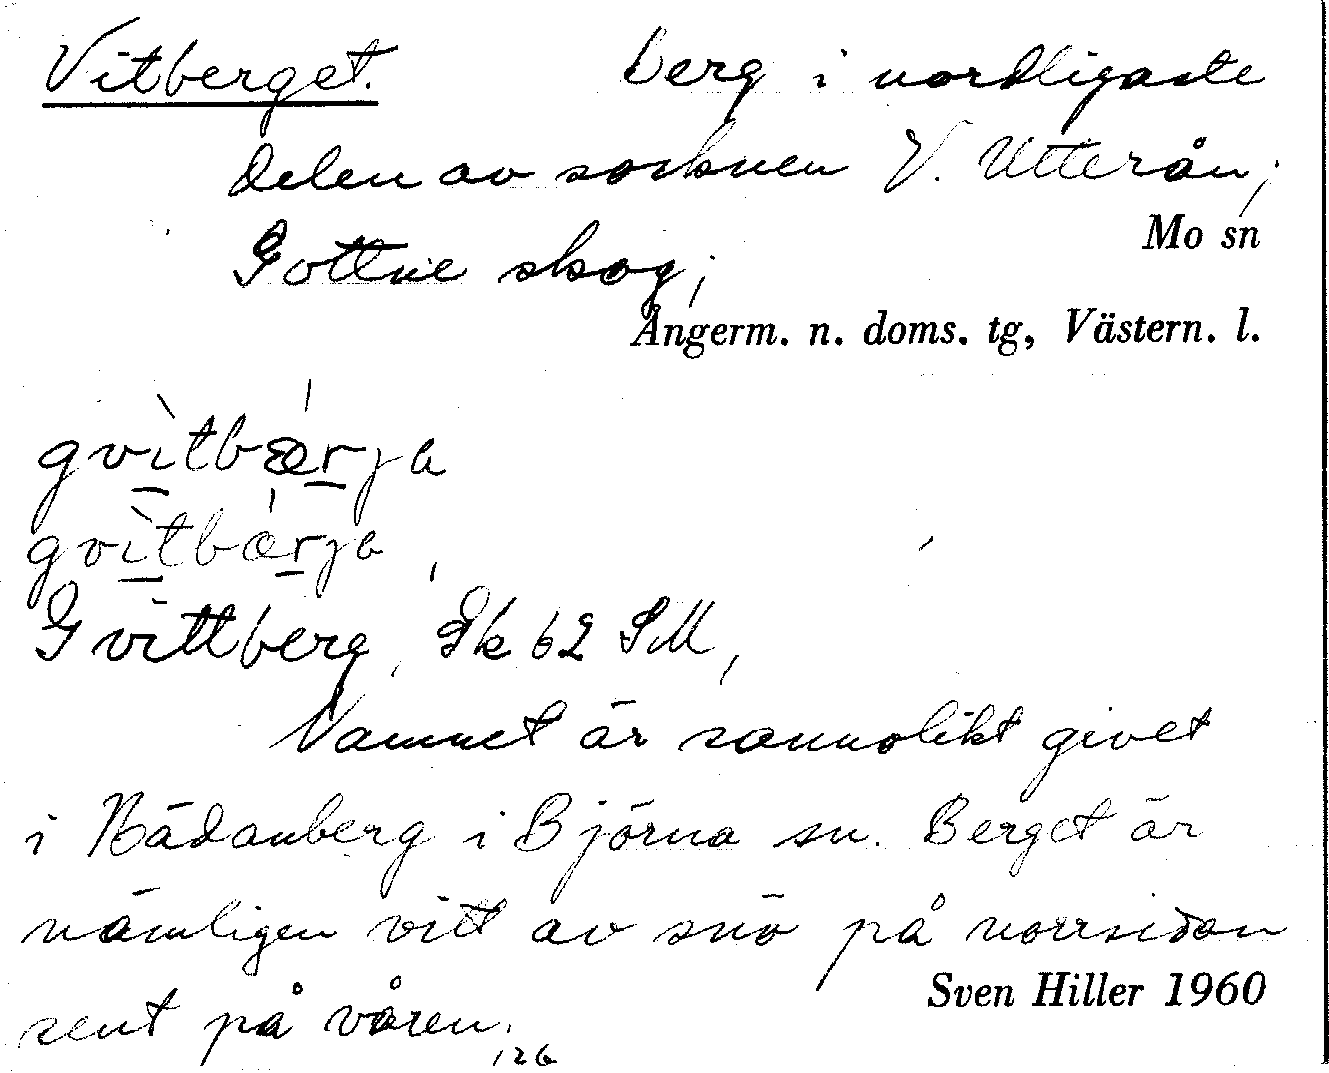 Vitberget. berg i nordligaste
delen av socknen V. Utterån;
Mo sn
Gottne skog;
Ångerm. n. doms. tg, Västern. l.
gvìtbǽrja
gvìtbǽrja
Gvittberg, Gk 62 SM,
Namnet är sannolikt givet
i Nädanberg i Björna sn. Berget är
nämligen vitt av snö på norrsidan
sent på våren.
Sven Hiller 1960
126